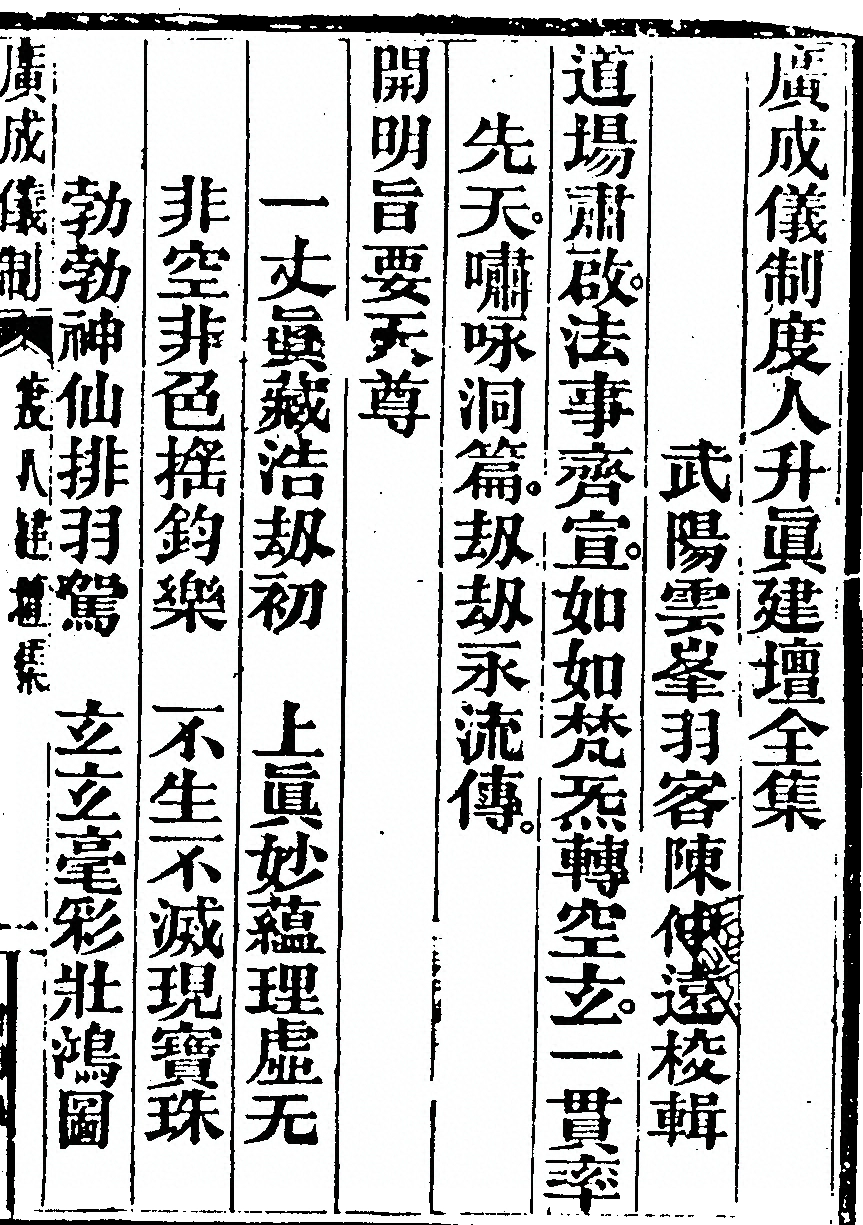 廣成儀制度人升眞建壇全集
武陽雲峯羽客陳仲遠校輯
道場肅啟。法事齊宣。如如梵炁轉空玄。一貫率
先天。嘯咏洞篇。刼刼永流傳。
開明旨要天尊
一丈眞藏浩刼初　上眞妙蘊理虛无
非空非色搖鈞樂　不生不滅現寶珠
勃勃神仙排羽駕　玄玄毫彩壯鴻圖
廣成儀制　度人建壇集　一